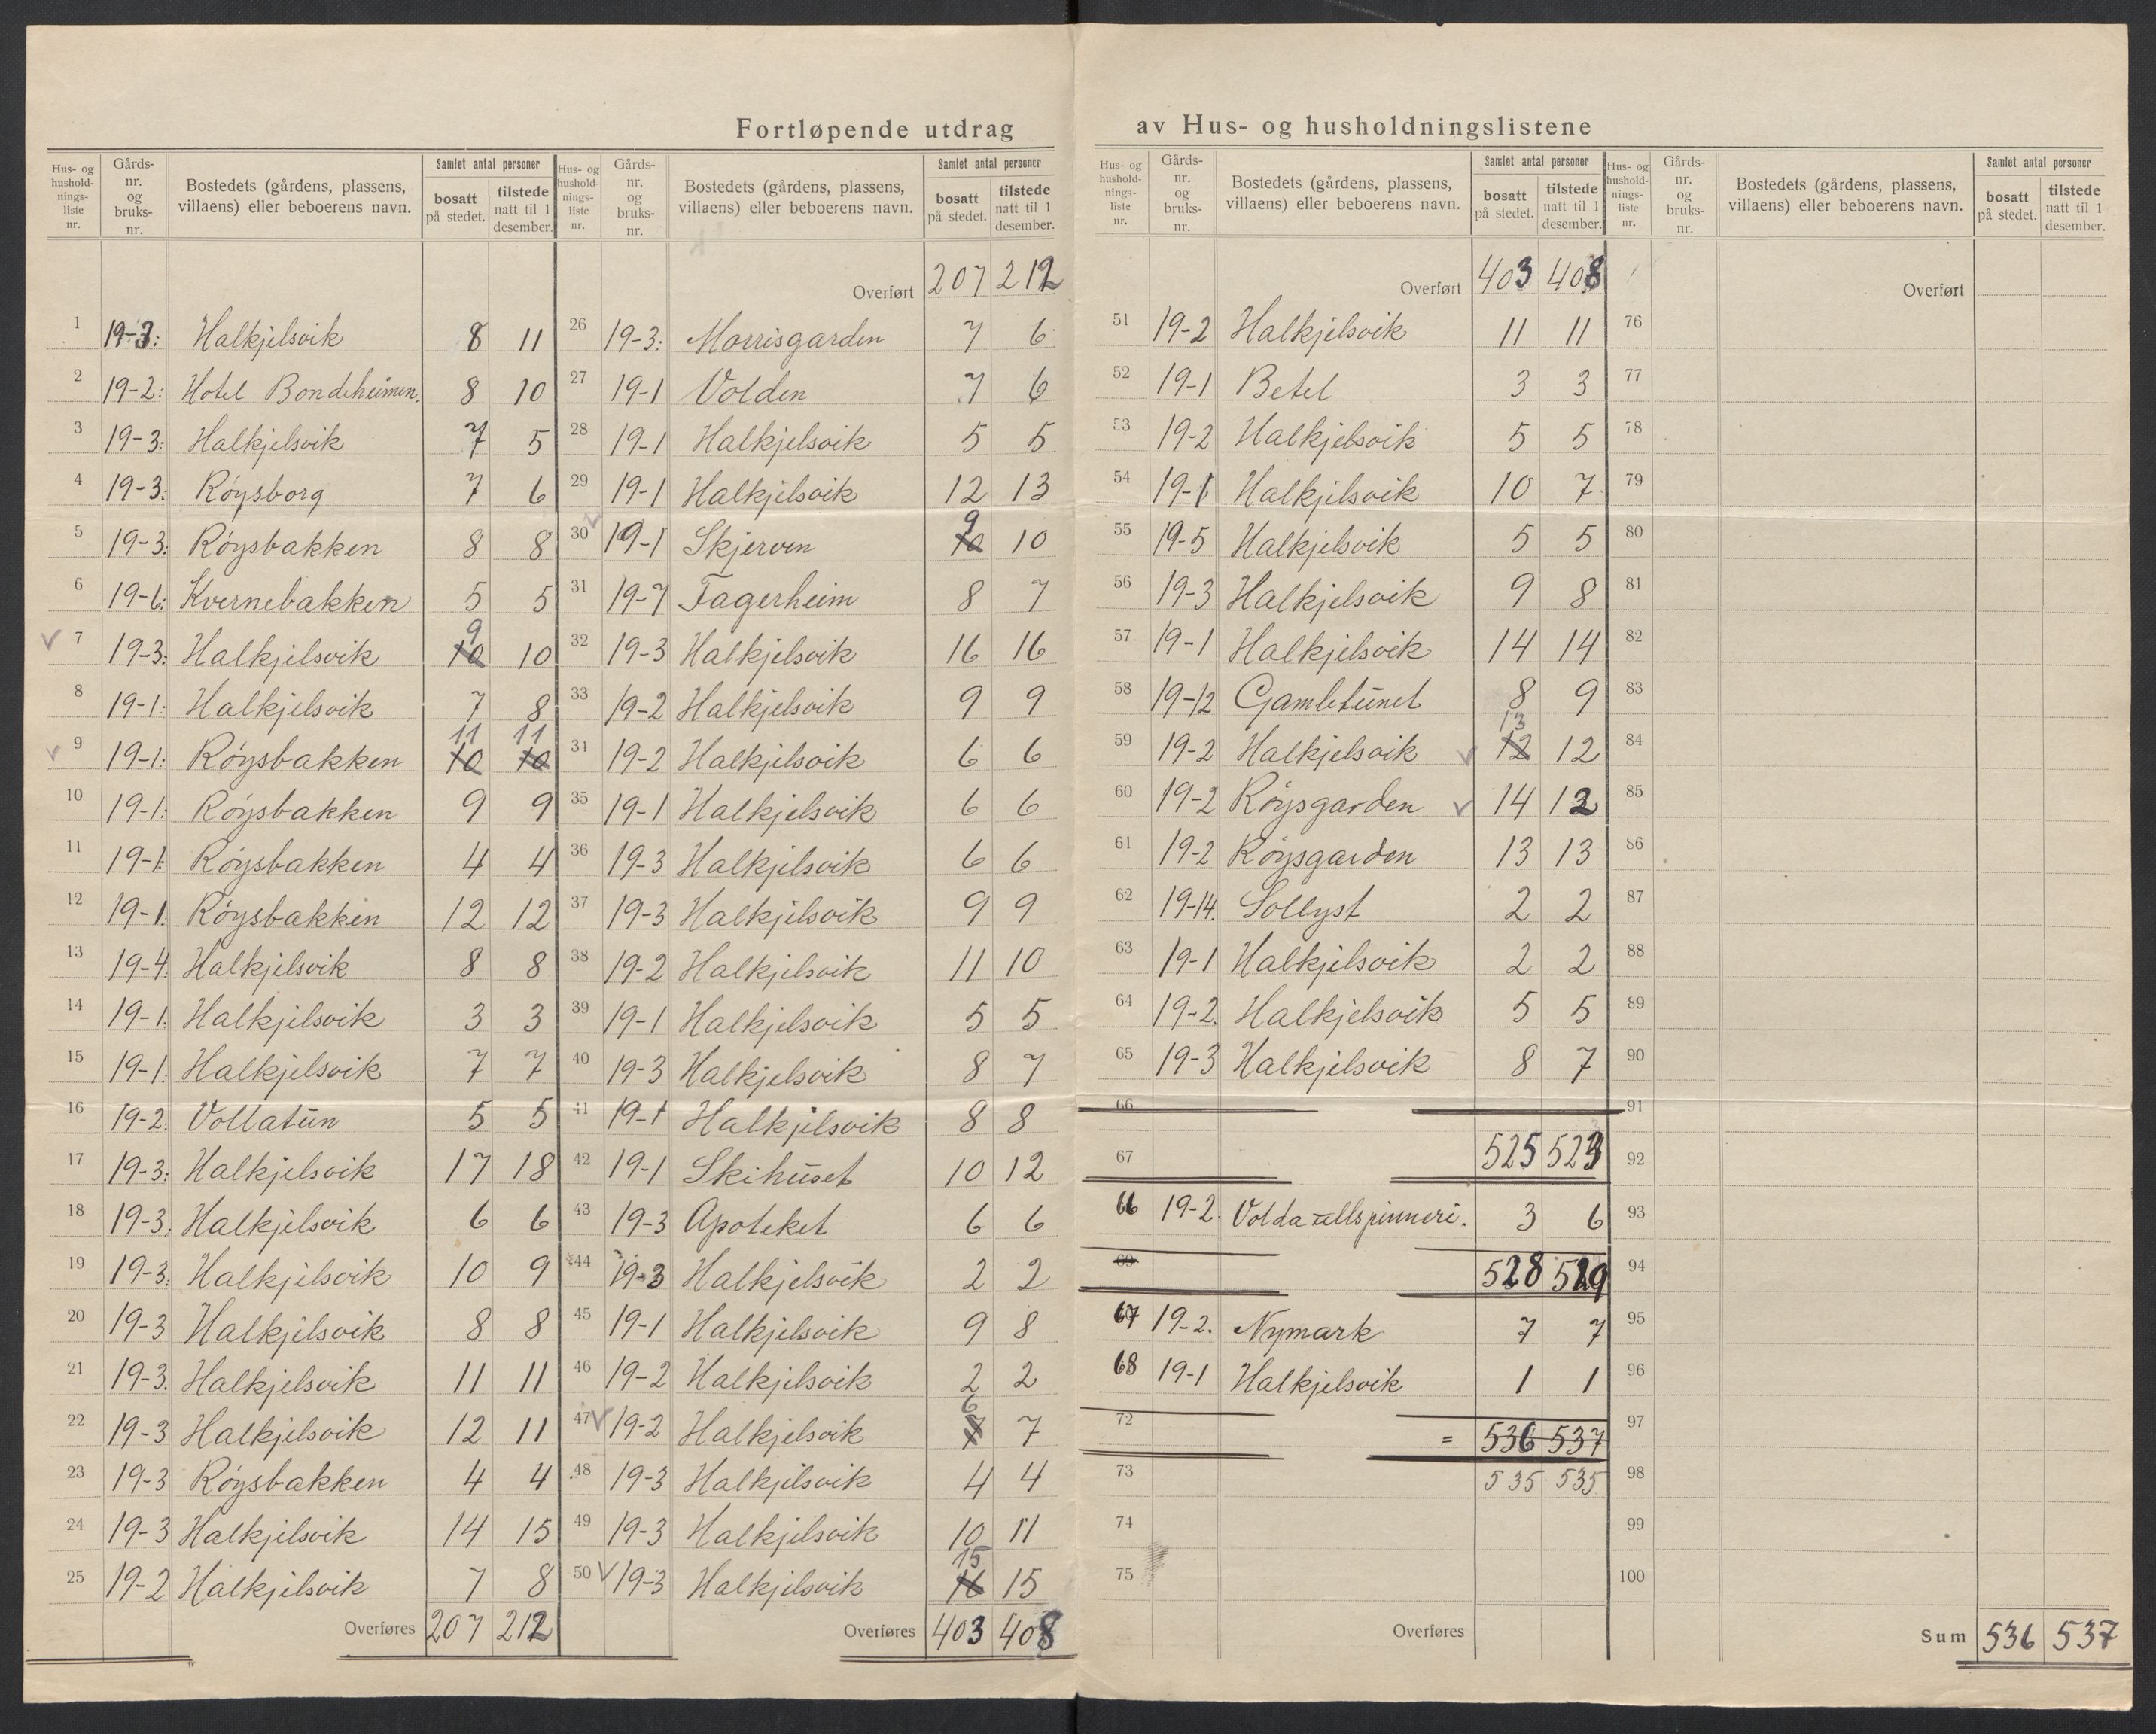 Fortløpende utdrag av Hus- og husholdningslistene
Hus- og husholdnings-liste nr. Gårds-nr. og bruks-nr. Bostedets (gårdens, plassens, villaens) eller beboerens navn. Samlet antal personer bosatt på stedet. tilstede natt til 1 desember.
1 19-3: Halkjelsvik 8 11
2 19-2: Hotel Bondeheimen. 8 10
3 19-3: Halkjelsvik 7 5
4 19-3: Röysborg 7 6
5 19-3: Röysbakken 8 8
6 19-6: Kvernebakken 5 5
✓ 7 19-3: Halkjelsvik 10 9 10
8 19-1: Halkjelsvik 7 8
✓ 9 19-1: Röysbakken 10 11 10 11
10 19-1: Röysbakken 9 9
11 19-1: Röysbakken 4 4
12 19-1. Röysbakken 12 12
13 19-4. Halkjelsvik 8 8
14 19-1. Halkjelsvik 3 3
15 19-1. Halkjelsvik 7 7
16 19-2: Vollatün 5 5
17 19-3: Halkjelsvik 17 18
18 19-3. Halkjelsvik 6 6
19 19-3. Halkjelsvik 10 9
20 19-3 Halkjelsvik 8 8
21 19-3. Halkjelsvik 11 11
22 19-3 Halkjelsvik 12 11
23 19-3 Röysbakken 4 4
24 19-3 Halkjelsvik 14 15
25 19-2 Halkjelsvik 7 8
Overføres 207 212
Hus- og husholdnings-liste nr. Gårds-nr. og bruks-nr. Bostedets (gårdens, plassens, villaens) eller beboerens navn. Samlet antal personer bosatt på stedet. tilstede natt til 1 desember.
Overført 207 212
26 19-3: Morrisgarden 7 6
27 19-1 Volden 7 6
28 19-1 Halkjelsvik 5 5
29 19-1 Halkjelsvik 12 13
30 ✓ 19-1 Skjerven 10 9 10
31 19-7 Fagerheim 8 7
32 19-3 Halkjelsvik 16 16
33 19-2 Halkjelsvik 9 9
34 19-2 Halkjelsvik 6 6
35 19-1 Halkjelsvik 6 6
36 19-3 Halkjelsvik 6 6
37 19-3 Halkjelsvik 9 9
38 19-2 Halkjelsvik 11 10
39 19-1 Halkjelsvik 5 5
40 19-3 Halkjelsvik 8 7
41 19-1 Halkjelsvik 8 8
42 19-1 Skihüset 10 12
43 19-3 Apoteket 6 6
44 19-3 Halkjelsvik 2 2
45 19-1 Halkjelsvik 9 8
46 19-2 Halkjelsvik 2 2
47 ✓ 19-2 Halkjelsvik 7 6 7
48 19-3 Halkjelsvik 4 4
49 19-3 Halkjelsvik 10 11
50 ✓ 19-3 Halkjelsvik 16 15 15
Overføres 403 408
Hus- og hushold-nings-liste nr. Gårds-nr. og bruks-nr. Bostedets (gårdens, plassens, villaens) eller beboerens navn. Samlet antal personer bosatt på stedet. tilstede natt til 1 desember.
Overført 403 408
51 19-2 Halkjelsvik 11 11
52 19-1 Betel 3 3
53 19-2 Halkjelsvik 5 5
54 19-1 Halkjelsvik 10 7
55 19-5 Halkjelsvik 5 5
56 19-3 Halkjelsvik 9 8
57 19-1 Halkjelsvik 14 14
58 19-12 Gamletünet 8 9
59 19-2 Halkjelsvik ✓ 12 13 12
60 19-2 Röysgarden ✓ 14 12
61 19-2 Röysgarden 13 13
62 19-14. Sollyst 2 2
63 19-1 Halkjelsvik 2 2
64 19-2. Halkjelsvik 5 5
65 19-3 Halkjelsvik 8 7
66
67 525 523
66 19-2. Volda ullspinneri. 3 6
69 528 529
67 19-2. Nymark 7 7
68 19-1 Halkjelsvik 1 1
72 = 536 537
73 535 535
74
75
Overføres
Hus- og husholdnings-liste nr. Gårds-nr. og bruks-nr. Bostedets (gårdens, plassens, villaens) eller beboerens navn. Samlet antal personer bosatt på stedet. tilstede natt til 1 desember.
Overført
76
77
78
79
80
81
82
83
84
85
86
87
88
89
90
91
92
93
94
95
96
97
98
99
100
Sum 536 537